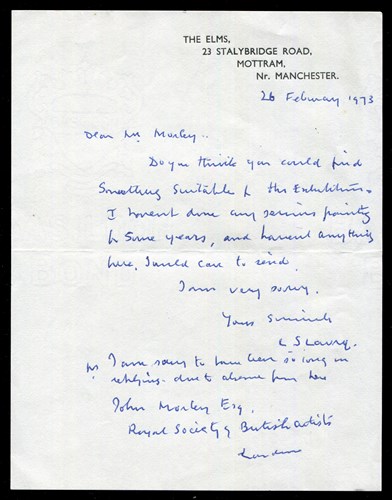 THE ELMS,
23 STALYBRIDGE ROAD,
MOTTRAM,
Nr. MANCHESTER.
26 February 1973
Dear Mr Morley..
Do you think you could find
Something suitable for the Exhibition.
I havent done any serious painting
for some years, and havent anything
here I could care to send.
I am very sorry.
Yours Sincerely
L S Lowry.
PS I am sorry to have been so long in
replying. due to absence from here
John Morley Esq.
Royal Society of British Artists
London